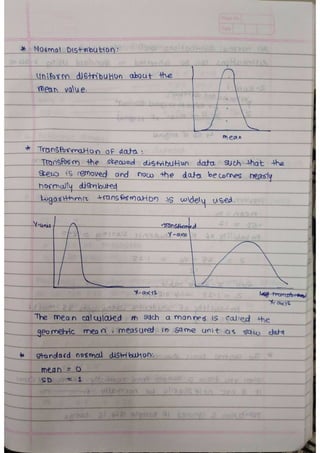 * Normal Distribution:
Uniform distribution about the
mean value.
mean
* Transformation of data:
Transform the skewed distribution data such that the
skew is removed and now the data becomes nearly
normally distributed
Logarithmic transformation is widely used.
Y-axis
Transformed
Y-axis
X-axis
X-axis
The mean calculated in such a manner is called the
geometric mean; measured in same unit as raw data
* Standard normal distribution:
mean = 0
SD = 1